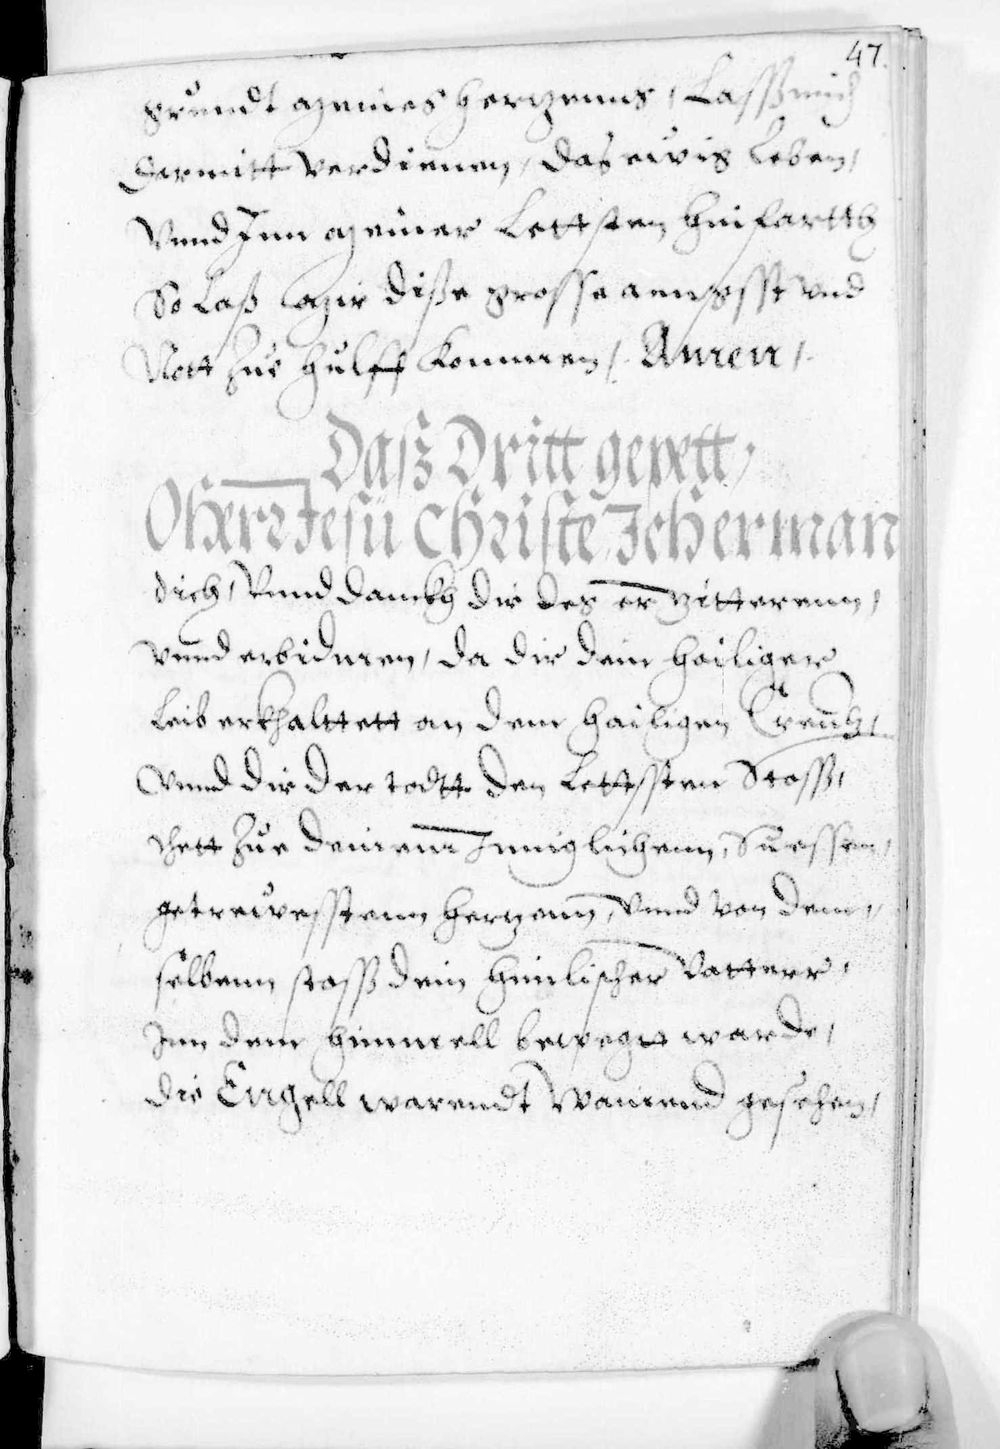 47.
grundt meines hertzenns, Lasß mich
darmitt verdienen, das ewig Leben,
Vnnd Inn meiner Lettsten hinfartth
So Laß mir diße grosse anngsst vnd
Nott zue hülff kommen, Amen,
Daß Dritt gepett,
O Herr Jesu Christe Ich erman
dich, Vnnd danckh dir des er zitterenn,
vnnd erbidmen, da dir dein heiliger
Leib erkhalttett an dem hailigen Creutz,
Vnnd dir der todtt den Lettssten Stosß,
thett Zue deinem Inniglichenn, Suessen,
getrewesstenn hertzenn, Vnnd von dem,
selbenn stosß dein himlischer Vatterr,
Inn dem himmell bewegtt warde,
die Enngell warendt Wainend gesehen,